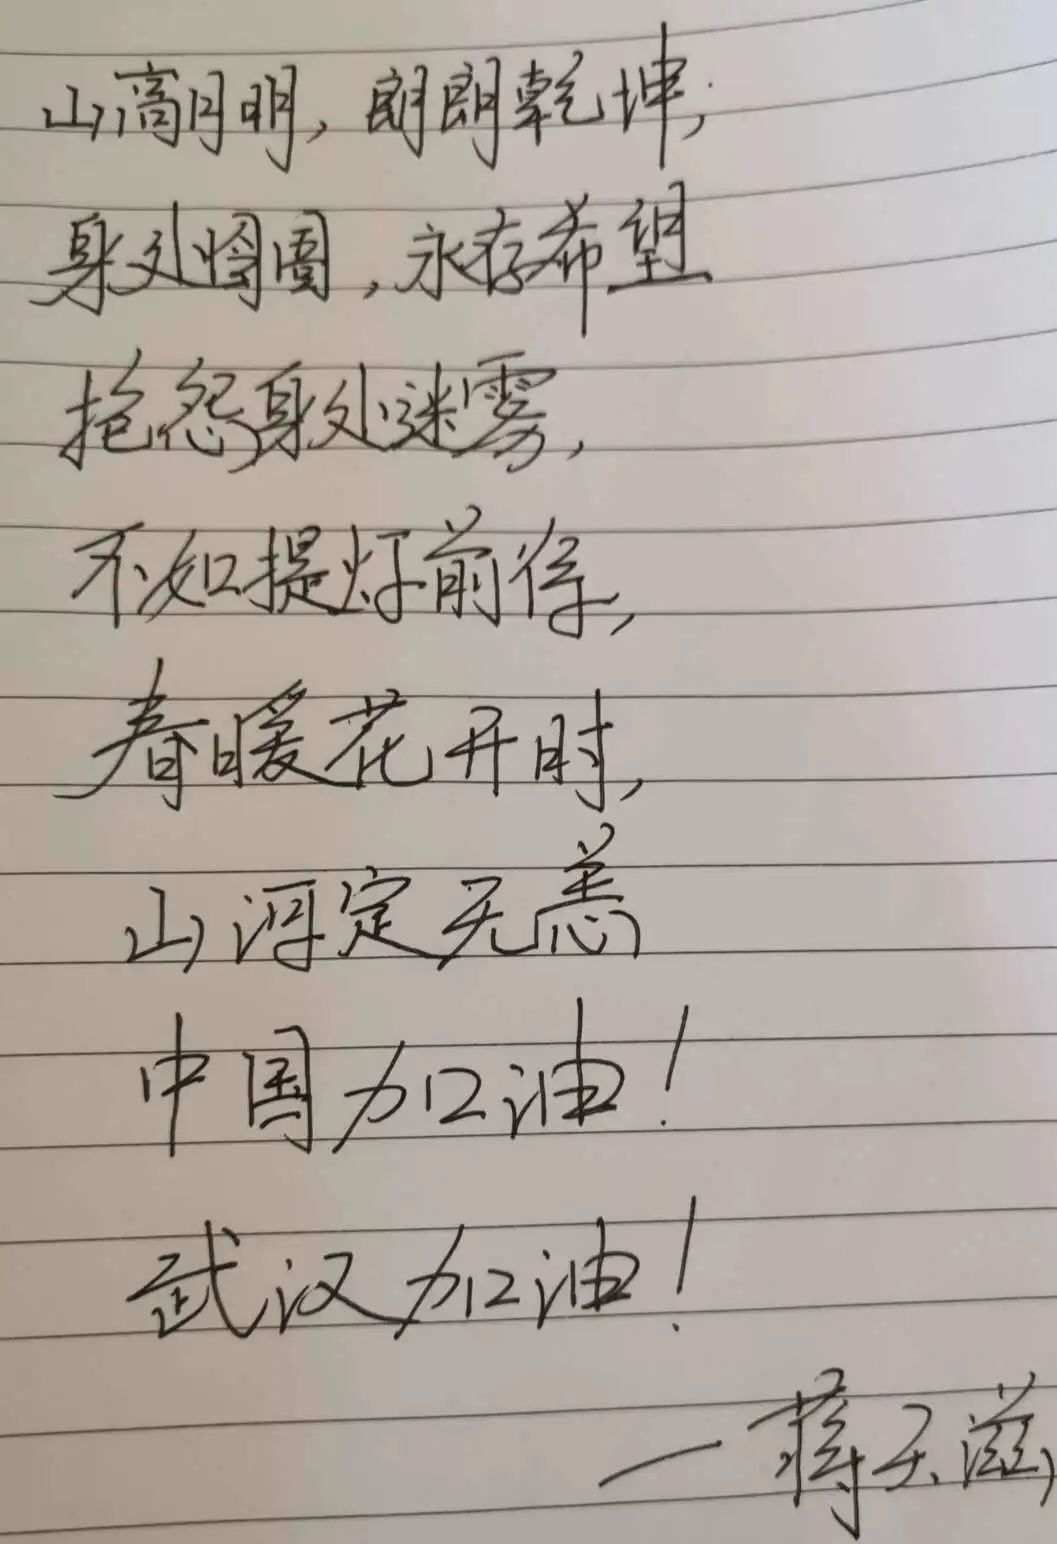 山高月明，朗朗乾坤，
身处惰围，永存希望
抱怨身处迷雾，
不如提灯前行，
春暖花开时，
山河定无恙
中国加油！
武汉加油！
一蒋天滋